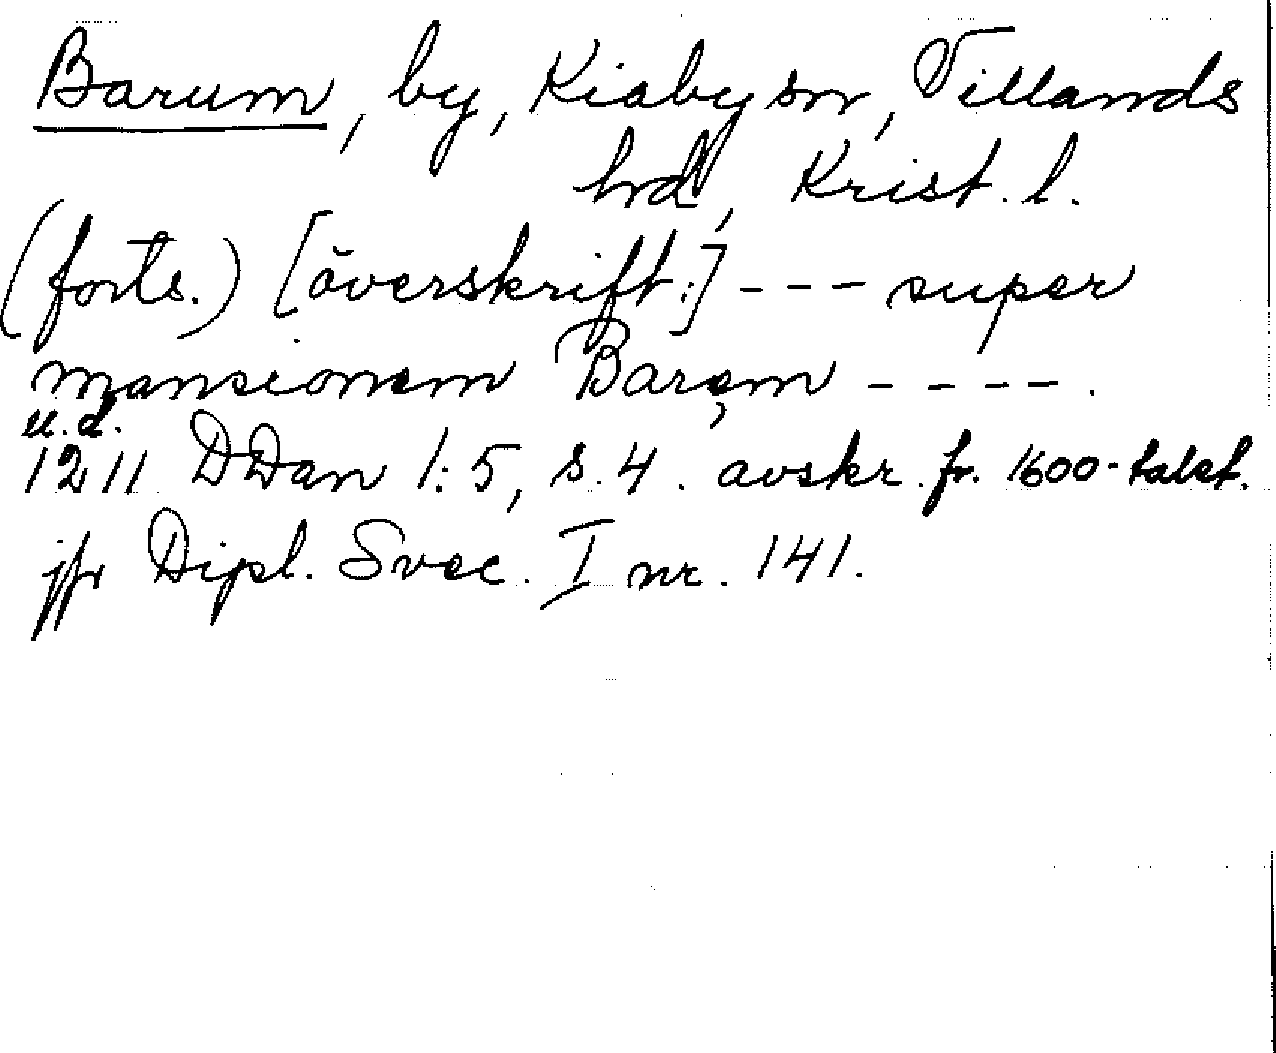 Barum, by, Kiaby sn, Villands
hd, Krist. l.
(forts.) [överskrift:] --- super
mansionem Baręm ----.
u.d.
1211 DDan 1:5, s. 4. avskr. fr. 1600-talet.
jfr Dipl. Svec. I nr. 141.